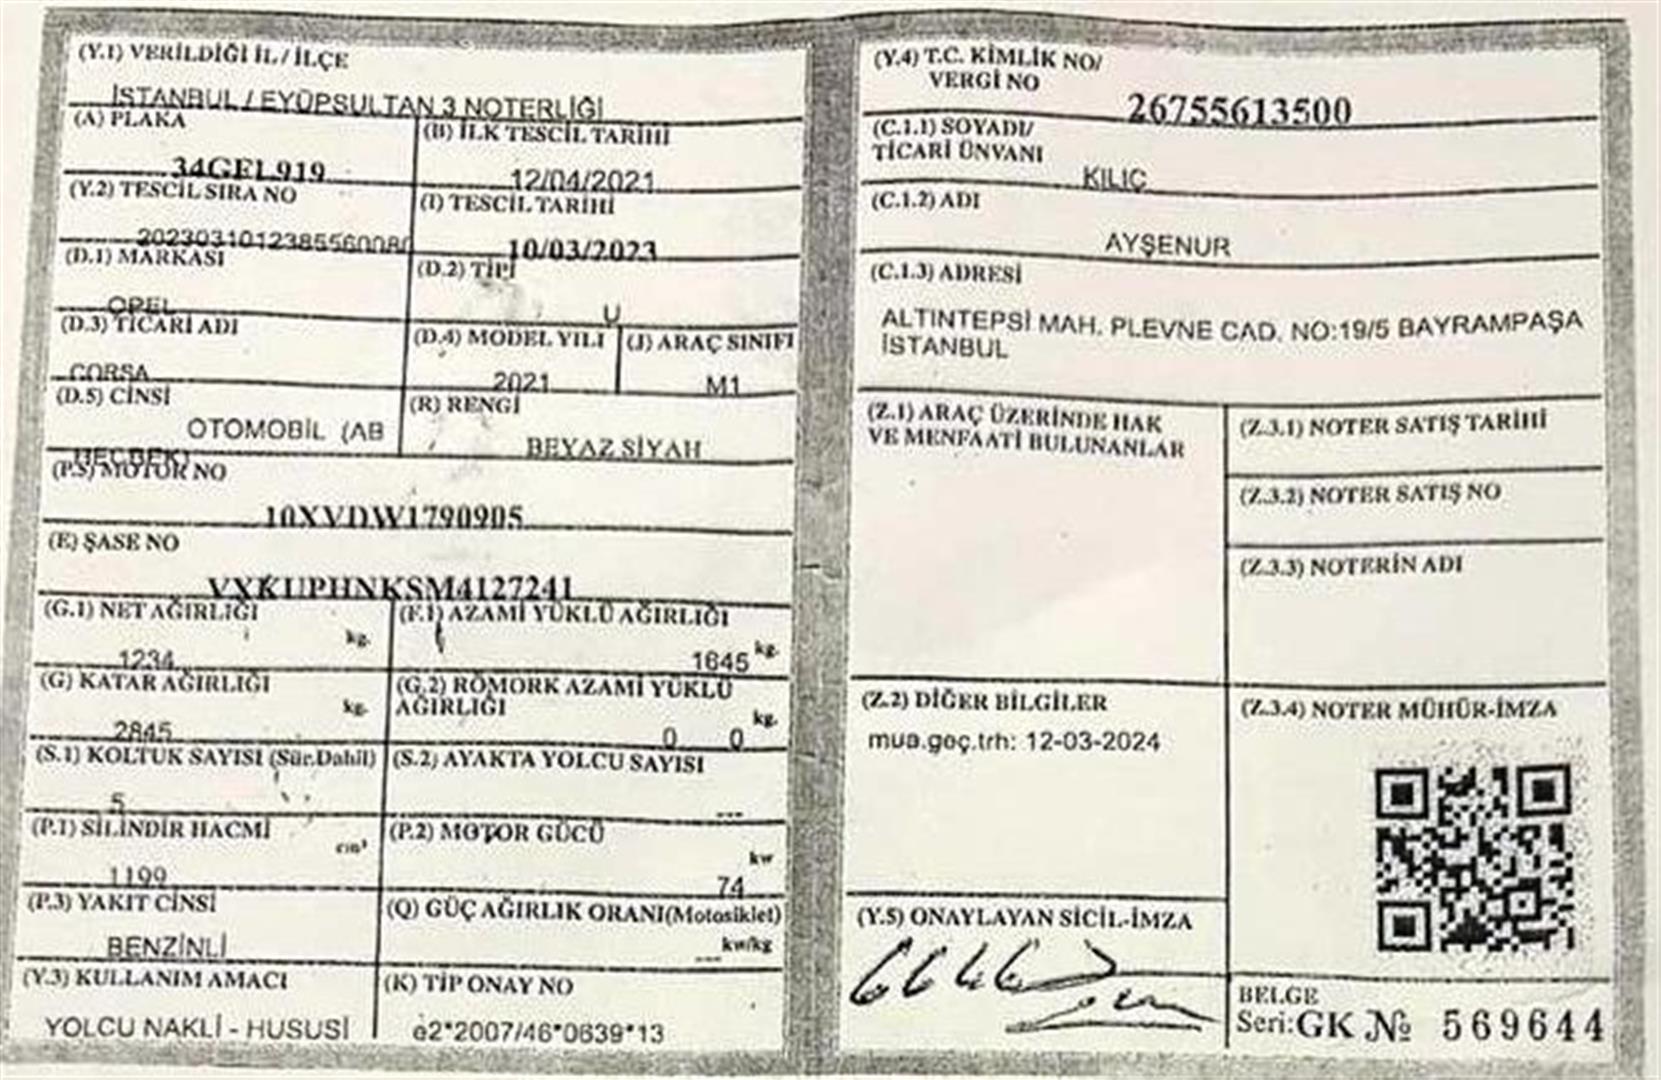 (Y.1) VERİLDİĞİ İL / İLÇE
İSTANBUL / EYÜPSULTAN 3 NOTERLİĞİ
(A) PLAKA
34GEL919
(B) İLK TESCİL TARİHİ
12/04/2021
(Y.2) TESCİL SIRA NO
2023031012385560080
(I) TESCİL TARİHİ
10/03/2023
(D.1) MARKASI
OPEL
(D.2) TİPİ
U
(D.3) TİCARİ ADI
CORSA
(D.4) MODEL YILI
2021
(J) ARAÇ SINIFI
M1
(D.5) CİNSİ
OTOMOBİL (AB
HEÇBEK)
(R) RENGİ
BEYAZ SİYAH
(P.5) MOTOR NO
10XVDW1790905
(E) ŞASE NO
VXKUPHNKSM4127241
(G.1) NET AĞIRLIĞI
kg.
1234
(F.1) AZAMİ YÜKLÜ AĞIRLIĞI
1645 kg.
(G) KATAR AĞIRLIĞI
kg.
2845
(G.2) RÖMORK AZAMİ YÜKLÜ
AĞIRLIĞI
0 0 kg.
(S.1) KOLTUK SAYISI (Sür.Dahil)
5
(S.2) AYAKTA YOLCU SAYISI
---
(P.1) SİLİNDİR HACMİ
cm³
1199
(P.2) MOTOR GÜCÜ
kw
74
(P.3) YAKIT CİNSİ
BENZİNLİ
(Q) GÜÇ AĞIRLIK ORANI(Motosiklet)
--- kw/kg
(Y.3) KULLANIM AMACI
YOLCU NAKLİ - HUSUSİ
(K) TİP ONAY NO
e2*2007/46*0639*13
(Y.4) T.C. KİMLİK NO/
VERGİ NO
26755613500
(C.1.1) SOYADI/
TİCARİ ÜNVANI
KILIÇ
(C.1.2) ADI
AYŞENUR
(C.1.3) ADRESİ
ALTINTEPSİ MAH. PLEVNE CAD. NO:19/5 BAYRAMPAŞA
İSTANBUL
(Z.1) ARAÇ ÜZERİNDE HAK
VE MENFAATİ BULUNANLAR
(Z.3.1) NOTER SATIŞ TARİHİ
(Z.3.2) NOTER SATIŞ NO
(Z.3.3) NOTERİN ADI
(Z.2) DİĞER BİLGİLER
mua.geç.trh: 12-03-2024
(Z.3.4) NOTER MÜHÜR-İMZA
(Y.5) ONAYLAYAN SİCİL-İMZA
BELGE
Seri:GK № 569644